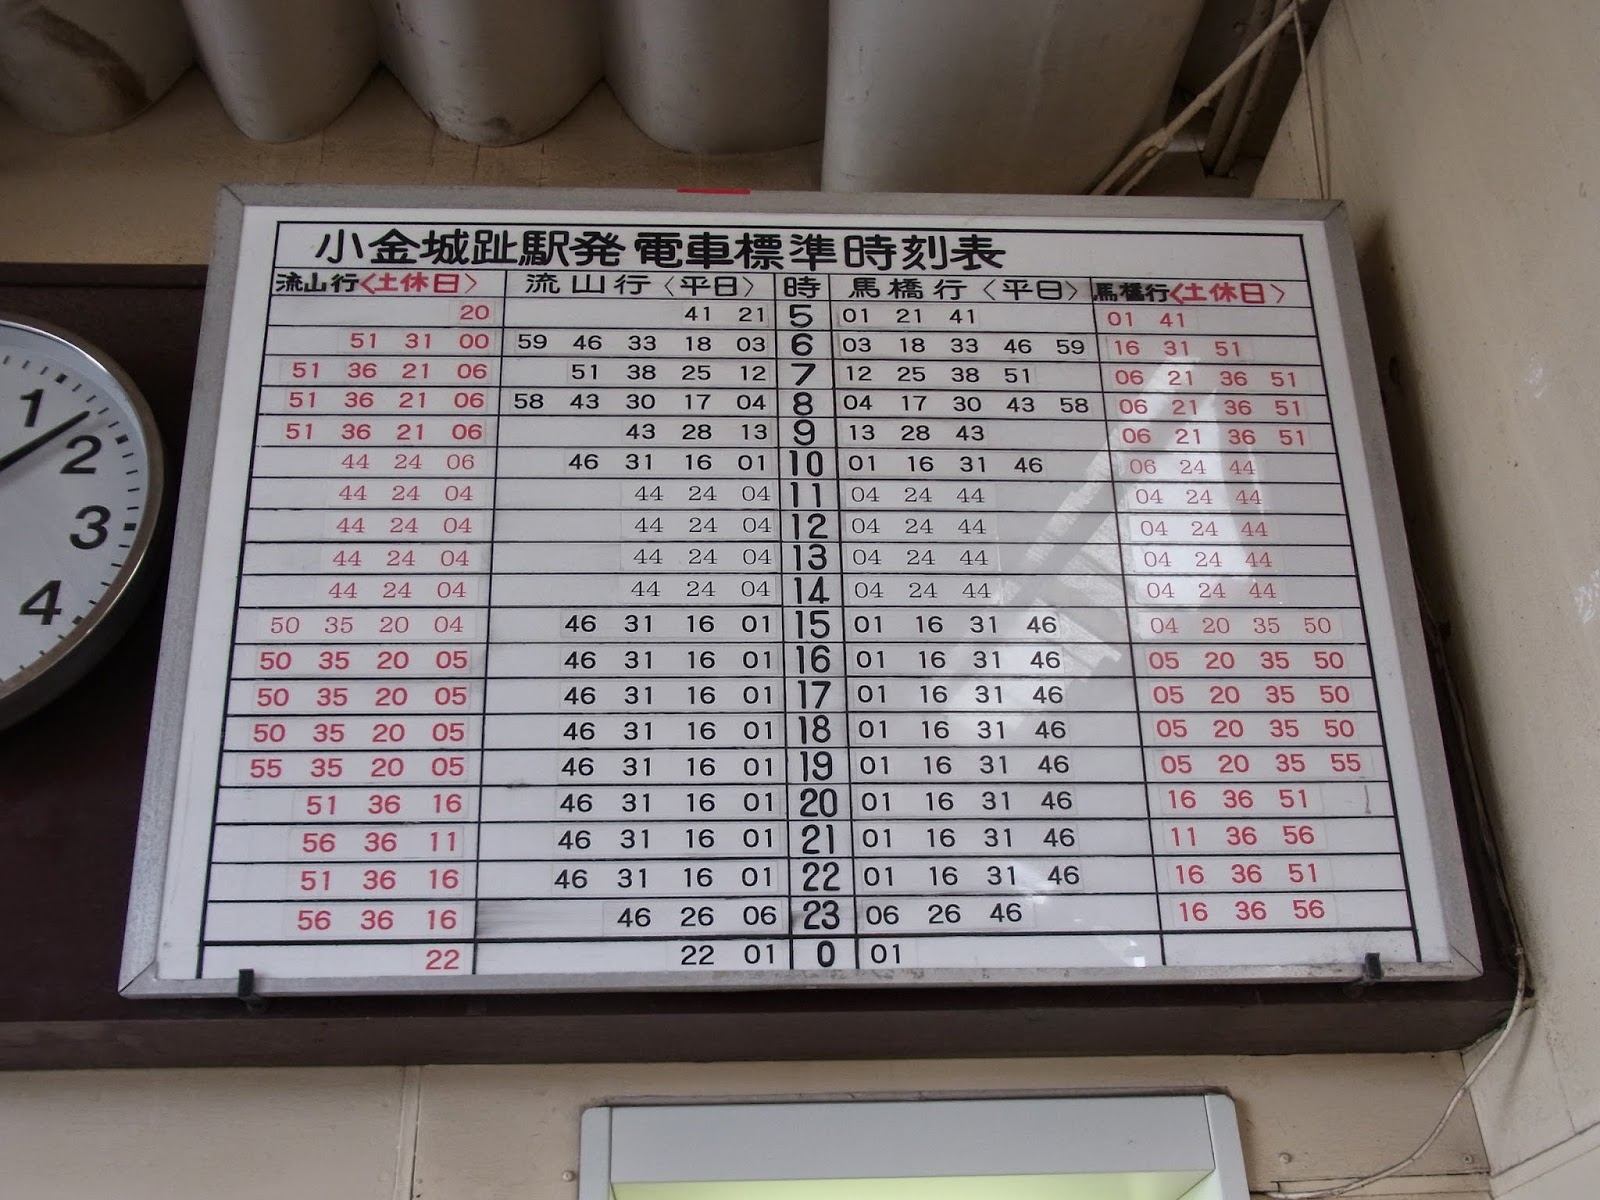 小金城趾駅発電車標準時刻表
流山行〈土休日〉 流山行〈平日〉 時 馬橋行〈平日〉 馬橋行〈土休日〉
20 41 21 5 01 21 41 01 41
51 31 00 59 46 33 18 03 6 03 18 33 46 59 16 31 51
51 36 21 06 51 38 25 12 7 12 25 38 51 06 21 36 51
51 36 21 06 58 43 30 17 04 8 04 17 30 43 58 06 21 36 51
51 36 21 06 43 28 13 9 13 28 43 06 21 36 51
44 24 06 46 31 16 01 10 01 16 31 46 06 24 44
44 24 04 44 24 04 11 04 24 44 04 24 44
44 24 04 44 24 04 12 04 24 44 04 24 44
44 24 04 44 24 04 13 04 24 44 04 24 44
44 24 04 44 24 04 14 04 24 44 04 24 44
50 35 20 04 46 31 16 01 15 01 16 31 46 04 20 35 50
50 35 20 05 46 31 16 01 16 01 16 31 46 05 20 35 50
50 35 20 05 46 31 16 01 17 01 16 31 46 05 20 35 50
50 35 20 05 46 31 16 01 18 01 16 31 46 05 20 35 50
55 35 20 05 46 31 16 01 19 01 16 31 46 05 20 35 55
51 36 16 46 31 16 01 20 01 16 31 46 16 36 51
56 36 11 46 31 16 01 21 01 16 31 46 11 36 56
51 36 16 46 31 16 01 22 01 16 31 46 16 36 51
56 36 16 46 26 06 23 06 26 46 16 36 56
22 22 01 0 01
1
2
3
4